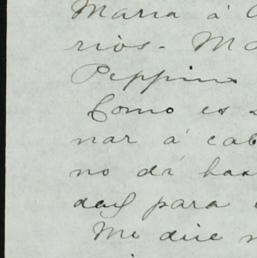 Maria á
rios. M
Peppino
Como es
nar á cab
no dá has
das para
Me dice